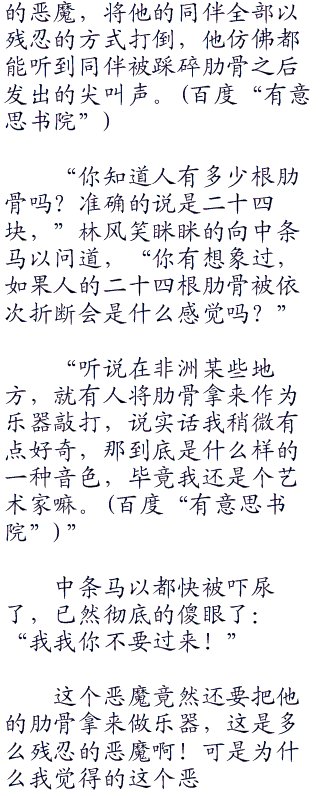 的恶魔，将他的同伴全部以
残忍的方式打倒，他仿佛都
能听到同伴被踩碎肋骨之后
发出的尖叫声。(百度“有意
思书院”)
“你知道人有多少根肋
骨吗？准确的说是二十四
块，”林风笑眯眯的向中条
马以问道，“你有想象过，
如果人的二十四根肋骨被依
次折断会是什么感觉吗？”
“听说在非洲某些地
方，就有人将肋骨拿来作为
乐器敲打，说实话我稍微有
点好奇，那到底是什么样的
一种音色，毕竟我还是个艺
术家嘛。(百度“有意思书
院”)”
中条马以都快被吓尿
了，已然彻底的傻眼了：
“我我你不要过来！”
这个恶魔竟然还要把他
的肋骨拿来做乐器，这是多
么残忍的恶魔啊！可是为什
么我觉得的这个恶